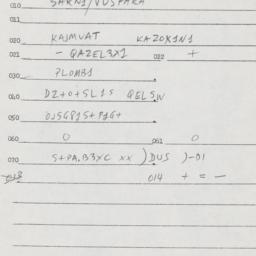 010 SARNI/VUSPARA
011
020 KAJMVAT KAZOKINI
021 - QAZEL3X1 022 +
030 PLOMB1
040 DZ+0+SL1S QELS.W
050 OJSG81S+P1G+
060 0 061 0
070 S+PA.B3XC XX ) DUS )-01
014 + = -